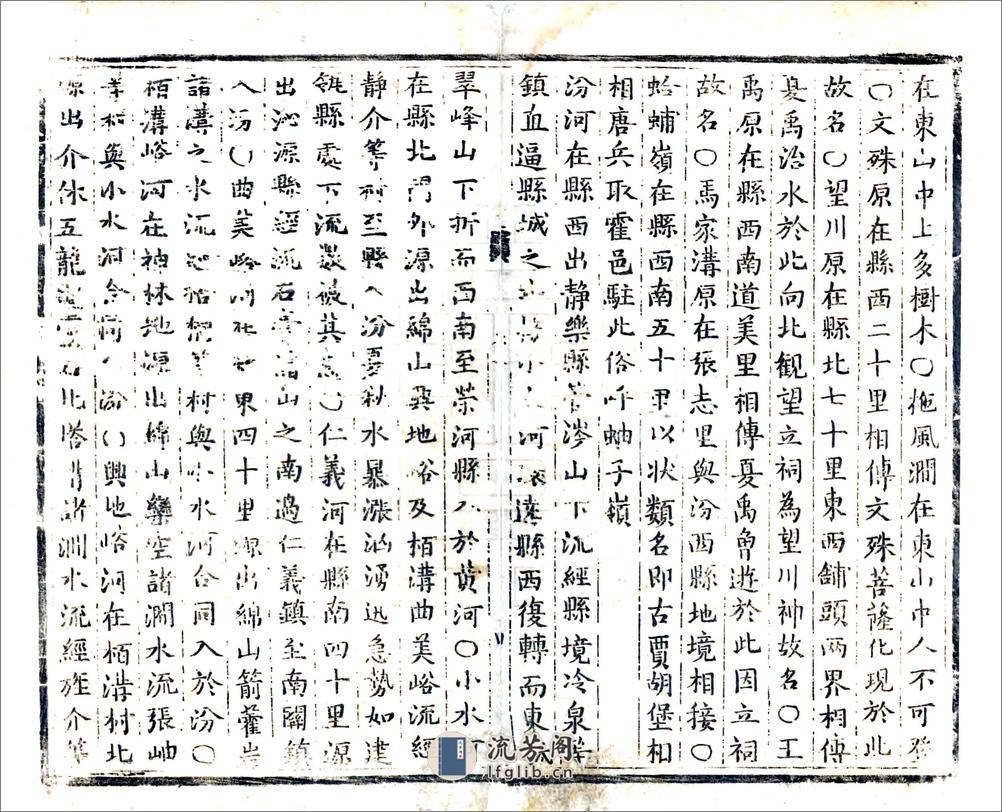 在東山中上多樹木〇拖風澗在東山中人不可登
〇文殊原在縣西二十里相傳文殊菩薩化現於此
故名〇望川原在縣北七十里東西舗頭兩界相傳
夏禹治水於此向北観望立祠為望川神故名〇王
禹原在縣西南道美里相傳夏禹曾遊於此因立祠
故名〇馬家溝原在張志里與汾西縣地境相接〇
蛤蛹嶺在縣西南五十里以状類名即古賈胡堡相
相唐兵取霍邑駐此俗呼蚰子嶺
汾河在縣西出静樂縣管涔山下流經縣境冷泉等
鎮血逼縣城之 小 河 遶縣西復轉而東
翠峰山下折而西南至荣河縣入於黄河〇小水河
在縣北門外源出綿山㒷地峪及栢溝曲美峪流經
静介等村至縣入汾夏秋水暴漲汹湧迅急勢如建
瓴縣處下流數被其 〇仁義河在縣南四十里源
出沁源縣經流石膏 山之南過仁義鎮至南關鎮
入汾〇曲美峪河在 東四十里源出綿山箭藿岩
諸溝之水流 村與小水河合同入於汾〇
栢溝峪河在神林 源出綿山 空諸澗水流張岫
等村與小水河合同入汾〇興地峪河在栢溝村北
源出介休五龍 諸澗水流經旌介等
流芳阁
lfglib.cn